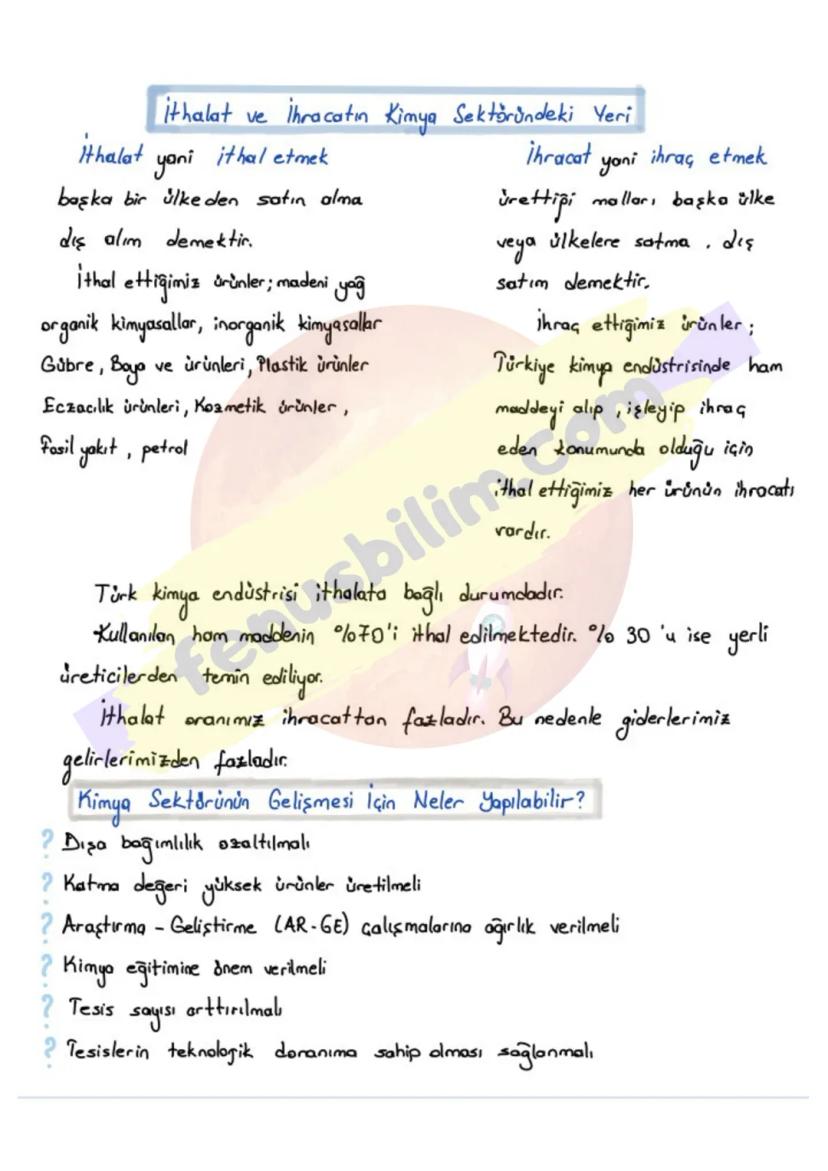 İthalat ve İhracatın Kimya Sektöründeki Yeri
İthalat yani ithal etmek
başka bir ülkeden satın alma
dış alım demektir.
İthal ettiğimiz ürünler; madeni yağ
organik kimyasallar, inorganik kimyasallar
Gübre, Boya ve ürünleri, Plastik ürünler
Eczacılık ürünleri, Kozmetik ürünler,
Fosil yakıt, petrol
İhracat yani ihraç etmek
ürettiği malları başka ülke
veya ülkelere satma, dış
satım demektir.
İhraç ettiğimiz ürünler;
Türkiye kimya endüstrisinde ham
maddeyi alıp, işleyip ihraç
eden konumunda olduğu için
ithal ettiğimiz her ürünün ihracatı
vardır.
Türk kimya endüstrisi ithalata bağlı durumdadır.
Kullanılan ham maddenin %70'i ithal edilmektedir. %30'u ise yerli
üreticilerden temin ediliyor.
İthalat oranımız ihracattan fazladır. Bu nedenle giderlerimiz
gelirlerimizden fazladır.
Kimya Sektörünün Gelişmesi İçin Neler Yapılabilir?
? Dışa bağımlılık azaltılmalı
? Katma değeri yüksek ürünler üretilmeli
? Araştırma - Geliştirme (AR-GE) çalışmalarına ağırlık verilmeli
? Kimya eğitimine önem verilmeli
? Tesis sayısı arttırılmalı
? Tesislerin teknolojik donanıma sahip olması sağlanmalı
fenusbilim.com